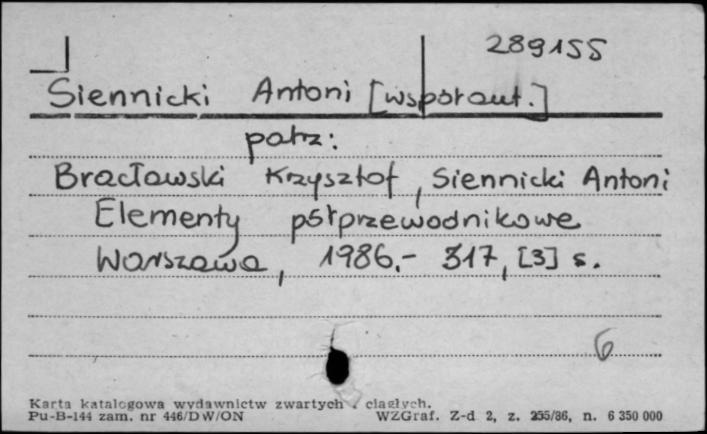 289155
Siennicki Antoni [współaut.]
patrz:
Bracławski Krzysztof, Siennicki Antoni
Elementy półprzewodnikowe
Warszawa, 1986.- 317, [3] s.
6
Karta katalogowa wydawnictw zwartych i ciągłych.
Pu-B-144 zam. nr 446/DW/ON WZGraf. Z-d 2, z. 255/86, n. 6 350 000